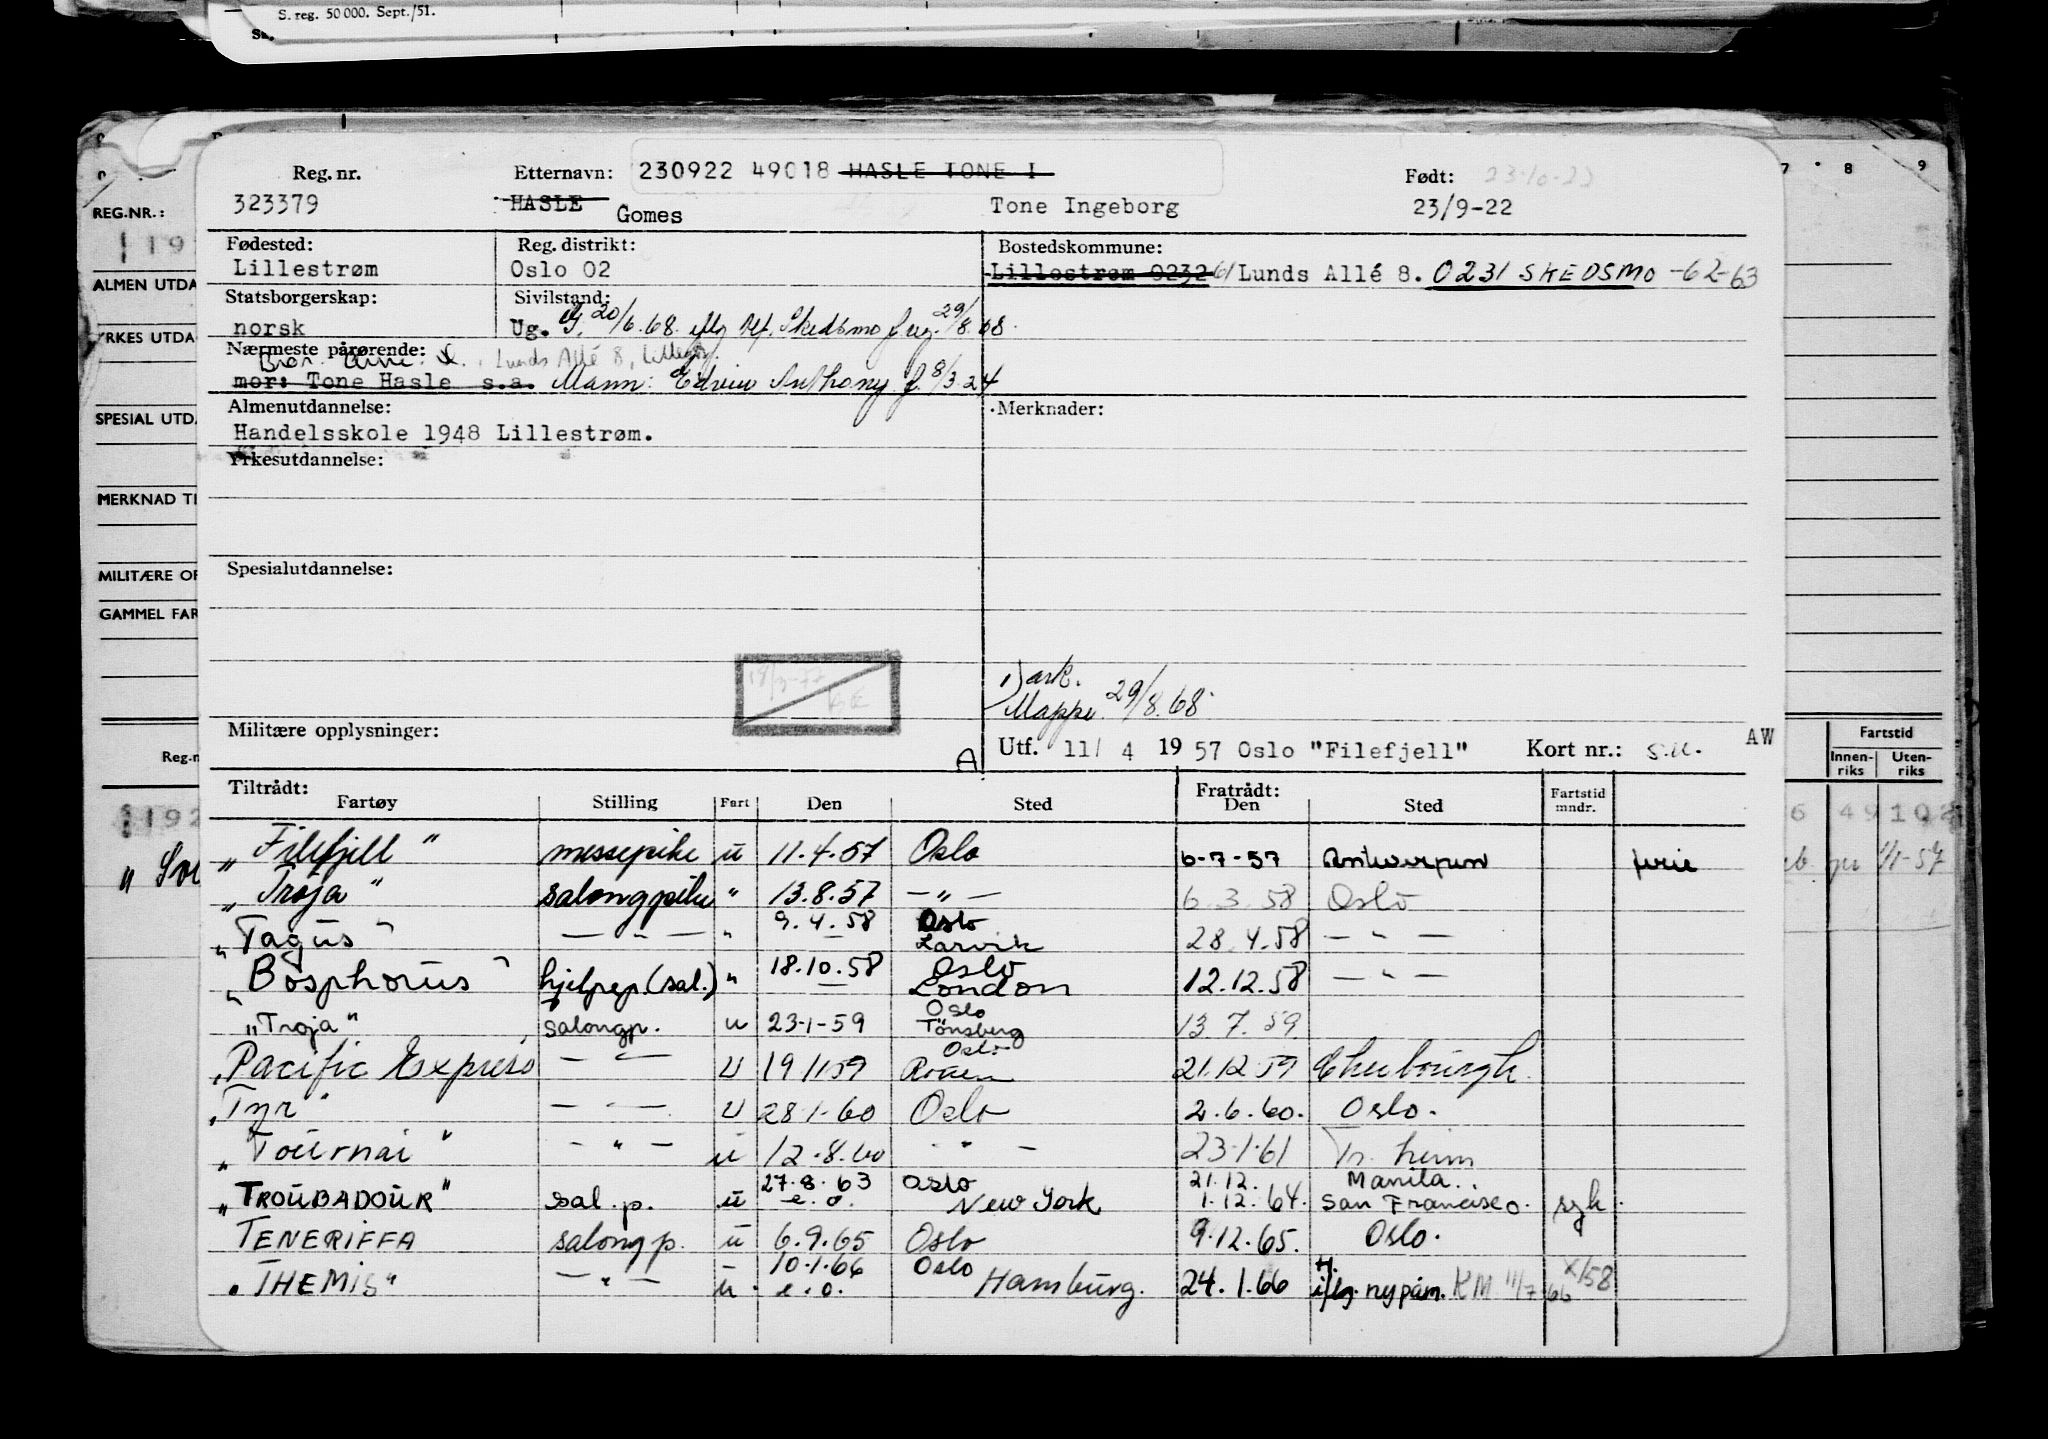 S. reg. 50 000. Sept./51.
7 8 9
REG.NR.:
ALMEN UTDA
YRKES UTDA
SPECIAL UTDA
MERKNAD TI
MILITÆRE OP
GAMMEL FAR
Reg.nr. Etternavn: 230922 49018 HASLE TONE I Født: 23-10-22
323379 HASLE Gomes Tone Ingeborg 23/9-22
Fødested: Reg. distrikt: Bostedskommune:
Lillestrøm Oslo 02 Lillestrøm 0232 61 Lunds Allé 8. 0231 SKEDSMO -62-63
Statsborgerskap: Sivilstand:
norsk Ug. G. 20/6.68. iflg Skedsmo f.reg. 29/8.68.
Nærmeste pårørende:
Bror Lunds Allé 8,
mor: Tone Hasle s.a. Mann: Edwin Anthony f. 8/3.24
Almenutdannelse: Merknader:
Handelsskole 1948 Lillestrøm.
Yrkesutdannelse:
Spesialutdannelse:
1) ark.
Mappe 29/8.68.
Militære opplysninger:
A Utf. 11/ 4 1957 Oslo "Filefjell" Kort nr.: s.u. AW
Fartstid
Innen-riks Uten-riks
Tiltrådt: Fratrådt:
Fartøy Stilling Fart Den Sted Den Sted Fartstid mndr.
"Filefjell" messepike u 11.4.57 Oslo 6-7-57 Antwerpen ferie
"Troja" salongpike " 13.8.57 — " — 6.3.58 Oslo
"Tagus" — " — " 9.4.58 Oslo Larvik 28.4.58 — " —
"Bosphorus" hjelpep.(sal.) " 18.10.58 Oslo London 12.12.58 — " —
"Troja" salongp. u 23-1-59 Oslo Tönsberg 13.7.59.
"Pacific Express — " — u 19/1159 Oslo Rouen 21.12.59 Cherbourgh
"Tyr" — " — u 28.1.60 Oslo 2.6.60. Oslo.
"Tournai" — " — u 12.8.60 — " — 23.1.61 Tr.heim
"TROUBADOUR" sal.p. u 27.8.63 e.o. Oslo New York 21.12. 1.12.64. Manila. San Francisco. syk.
TENERIFFA salongp. u 6.9.65 Oslo 9.12.65. Oslo.
"THEMIS" — " — u. 10.1.66 e.o. Oslo Hamburg. 24.1.66 H. iflg. ny påm. KM 11/7-66 X/58